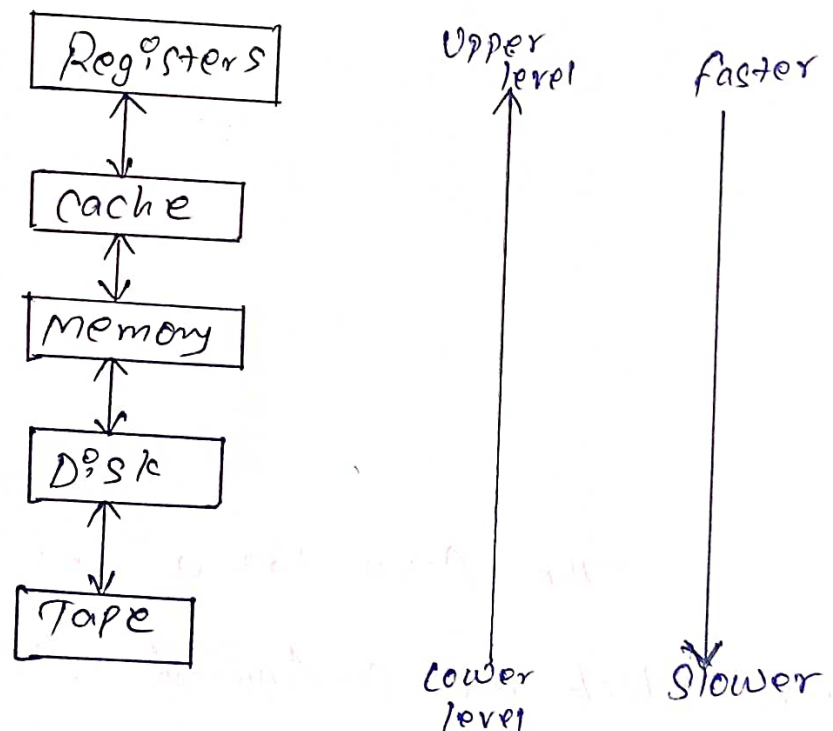 Registers
Cache
Memory
Disk
Tape
Upper
level
Lower
level
faster
Slower